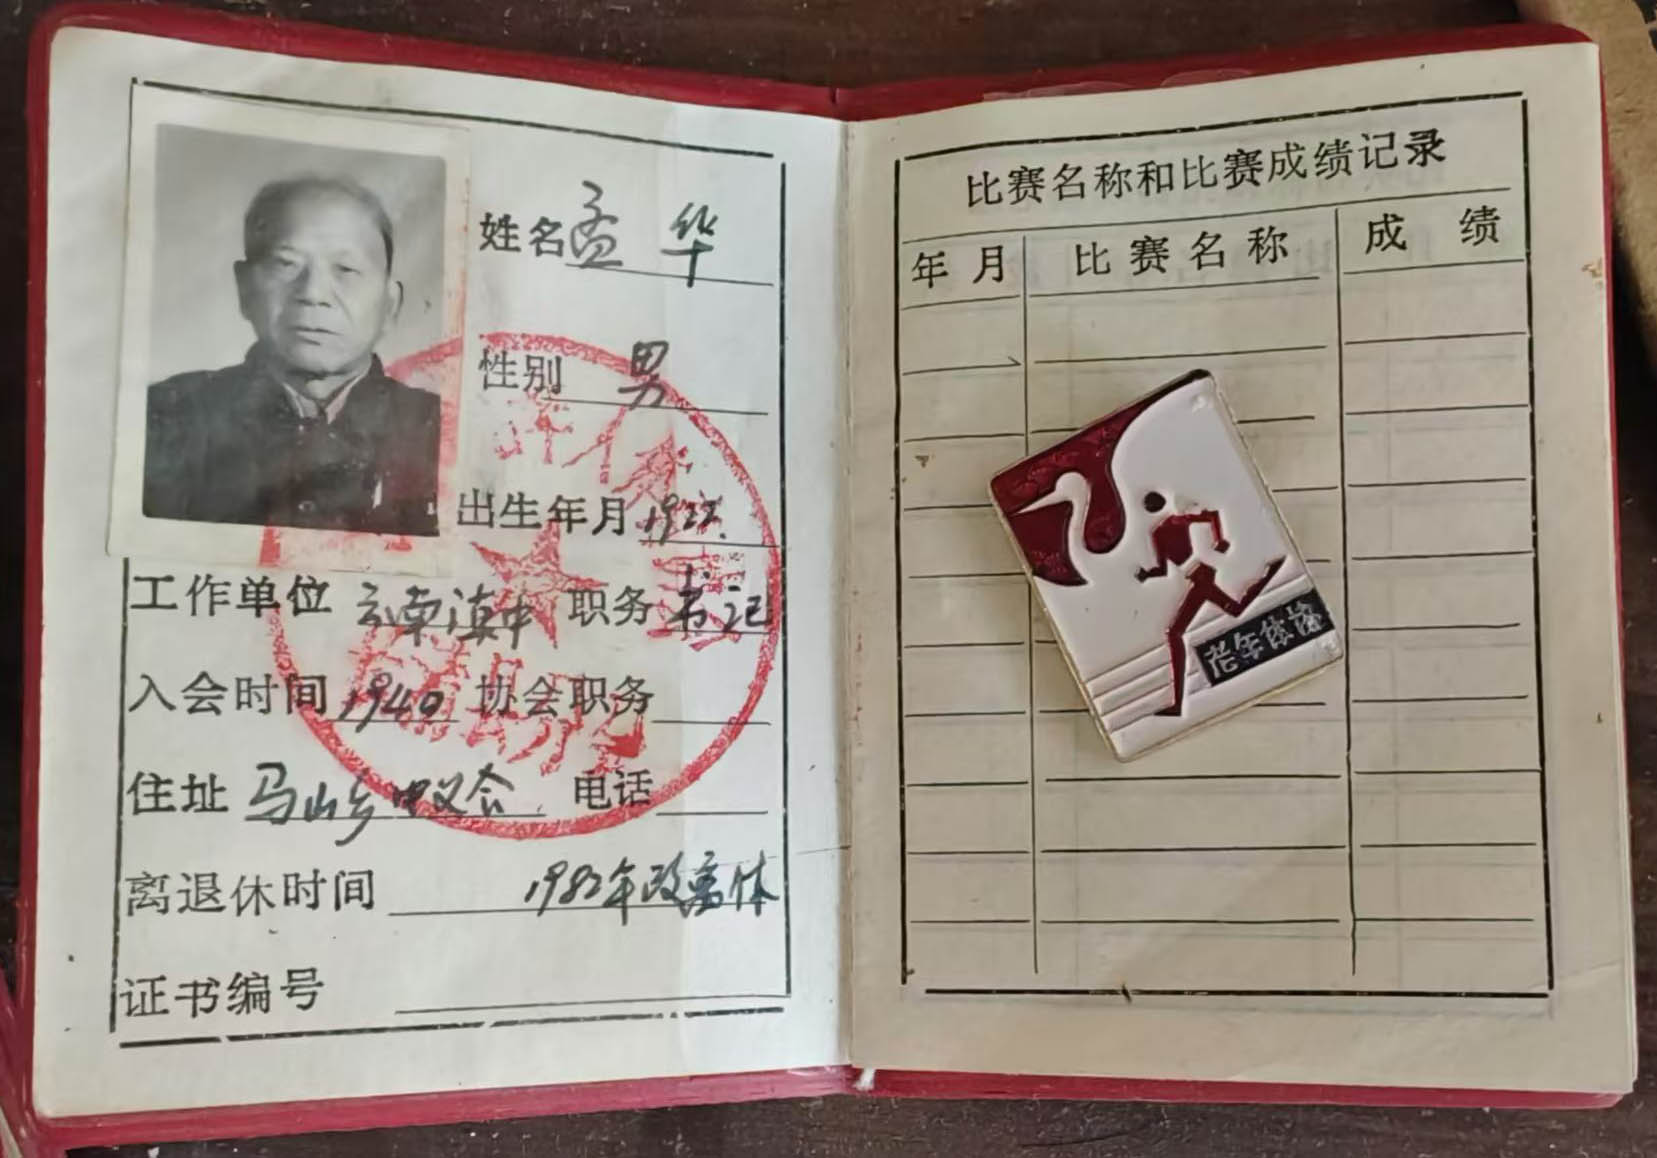 姓名 孟 华
性别 男
出生年月 192
工作单位 云南滇中 职务 书记
入会时间 1940 协会职务
住址 马山乡 电话
离退休时间 1982年改离休
证书编号
比赛名称和比赛成绩记录
年月 比赛名称 成绩
老年体协